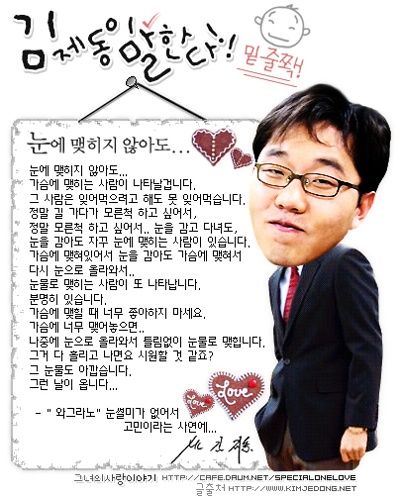 김제동이 말한다!
밑줄쫙!
눈에 맺히지 않아도...
눈에 맺히지 않아도...
가슴에 맺히는 사람이 나타날겁니다.
그 사람은 잊어먹으려고 해도 못 잊어먹습니다.
정말 길 가다가 모른척 하고 싶어서,
정말 모른척 하고 싶어서.. 눈을 감고 다녀도,
눈을 감아도 자꾸 눈에 맺히는 사람이 있습니다.
가슴에 맺혀있어서 눈을 감아도 가슴에 맺혀서
다시 눈으로 올라와서..
눈물로 맺히는 사람이 또 나타납니다.
분명히 있습니다.
가슴에 맺힐 때 너무 좋아하지 마세요.
가슴에 너무 맺어놓으면..
나중에 눈으로 올라와서 틀림없이 눈물로 맺힙니다.
그거 다 흘리고 나면요 시원할 것 같죠?
그 눈물도 아깝습니다.
그런 날이 옵니다...
Love
Love
- " 와그라노" 눈썰미가 없어서
고민이라는 사연에...
그녀의사랑이야기 HTTP://CAFE.DAUM.NET/SPECIALONELOVE
글출처 HTTP://WWW.KIMJEDONG.NET